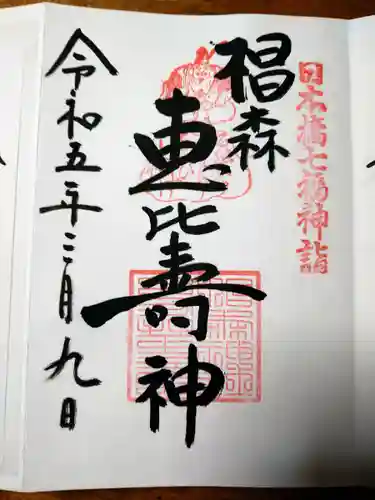 日本橋七福神詣
椙森
恵比壽神
令和五年三月九日